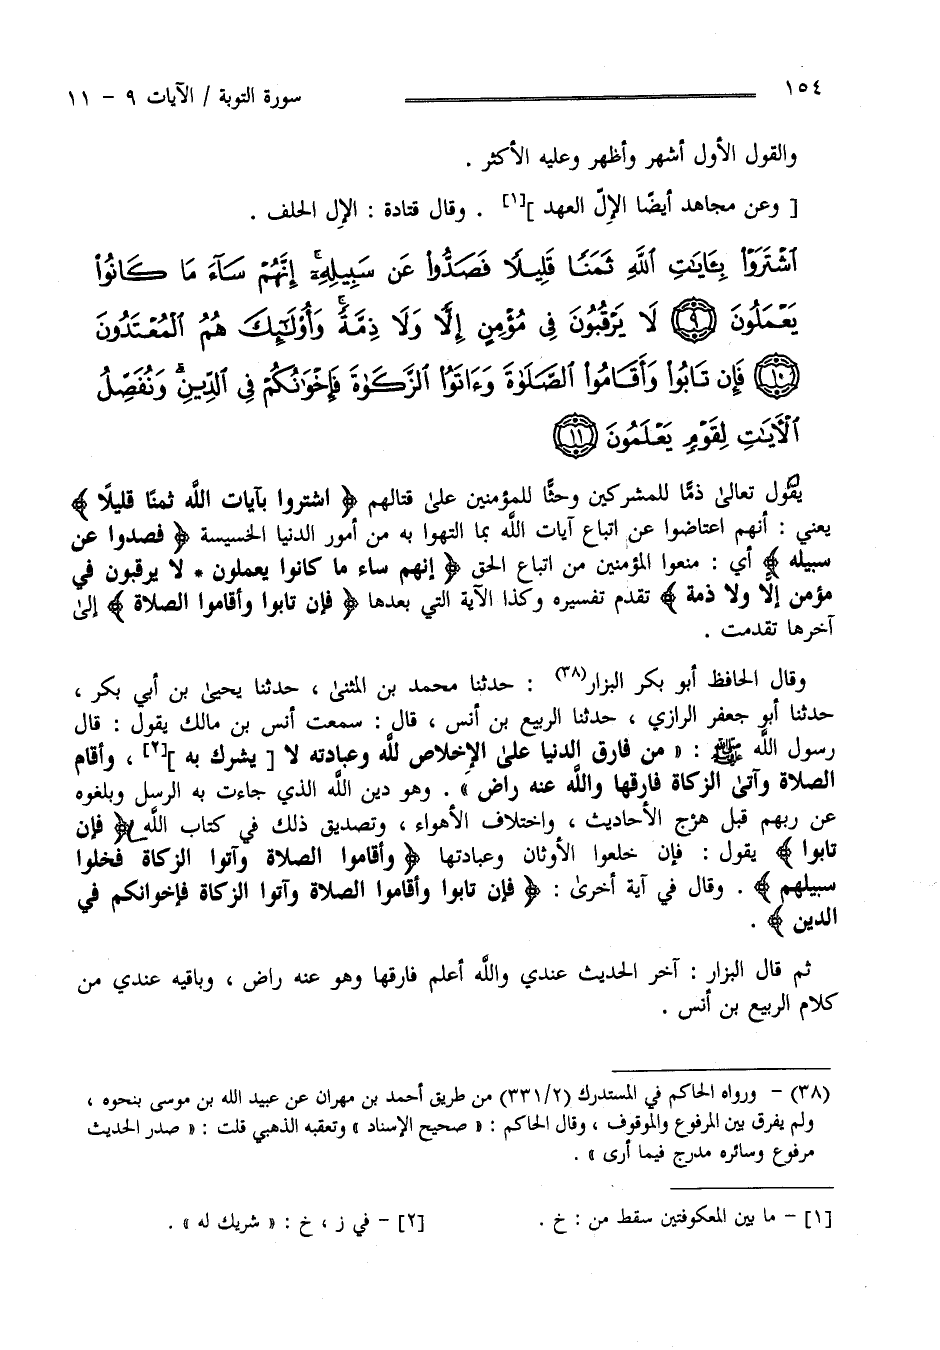 ١٥٤ سورة التوبة / الآيات ٩ - ١١
والقول الأول أشهر وأظهر وعليه الأكثر .
[ وعن مجاهد أيضًا الإلّ العهد ][١] . وقال قتادة : الإل الحلف .
ٱشْتَرَوْا۟ بِـَٔايَـٰتِ ٱللَّهِ ثَمَنًا قَلِيلًا فَصَدُّوا۟ عَن سَبِيلِهِۦٓ ۚ إِنَّهُمْ سَآءَ مَا كَانُوا۟
يَعْمَلُونَ ٩ لَا يَرْقُبُونَ فِى مُؤْمِنٍ إِلًّا وَلَا ذِمَّةً ۚ وَأُو۟لَـٰٓئِكَ هُمُ ٱلْمُعْتَدُونَ
١٠ فَإِن تَابُوا۟ وَأَقَامُوا۟ ٱلصَّلَوٰةَ وَءَاتَوُا۟ ٱلزَّكَوٰةَ فَإِخْوَٰنُكُمْ فِى ٱلدِّينِ ۗ وَنُفَصِّلُ
ٱلْـَٔايَـٰتِ لِقَوْمٍ يَعْلَمُونَ ١١
يقول تعالىٰ ذمًّا للمشركين وحثًّا للمؤمنين علىٰ قتالهم ﴿ اشتروا بآيات اللَّه ثمنًا قليلًا ﴾
يعني : أنهم اعتاضوا عن اتباع آيات اللَّه بما التهوا به من أمور الدنيا الخسيسة ﴿ فصدوا عن
سبيله ﴾ أي : منعوا المؤمنين من اتباع الحق ﴿ إنهم ساء ما كانوا يعملون * لا يرقبون في
مؤمن إلًّا ولا ذمة ﴾ تقدم تفسيره وكذا الآية التي بعدها ﴿ فإن تابوا وأقاموا الصلاة ﴾ إلىٰ
آخرها تقدمت .
وقال الحافظ أبو بكر البزار(٣٨) : حدثنا محمد بن المثنىٰ ، حدثنا يحيىٰ بن أبي بكر ،
حدثنا أبو جعفر الرازي ، حدثنا الربيع بن أنس ، قال : سمعت أنس بن مالك يقول : قال
رسول اللَّه ﷺ : « من فارق الدنيا علىٰ الإخلاص للَّه وعبادته لا [ يشرك به ][٢] ، وأقام
الصلاة وآتىٰ الزكاة فارقها واللَّه عنه راض » . وهو دين اللَّه الذي جاءت به الرسل وبلغوه
عن ربهم قبل هرْج الأحاديث ، واختلاف الأهواء ، وتصديق ذلك في كتاب اللَّه ﴿ فإن
تابوا ﴾ يقول : فإن خلعوا الأوثان وعبادتها ﴿ وأقاموا الصلاة وآتوا الزكاة فخلوا
سبيلهم ﴾ . وقال في آية أخرىٰ : ﴿ فإن تابوا وأقاموا الصلاة وآتوا الزكاة فإخوانكم في
الدين ﴾ .
ثم قال البزار : آخر الحديث عندي واللَّه أعلم فارقها وهو عنه راض ، وباقيه عندي من
كلام الربيع بن أنس .
(٣٨) - ورواه الحاكم في المستدرك (٣٣١/٢) من طريق أحمد بن مهران عن عبيد الله بن موسى بنحوه ،
ولم يفرق بين المرفوع والموقوف ، وقال الحاكم : « صحيح الإسناد » وتعقبه الذهبي قلت : « صدر الحديث
مرفوع وسائره مدرج فيما أرى » .
[١] - ما بين المعكوفتين سقط من : خ . [٢] - في ز ، خ : « شريك له » .